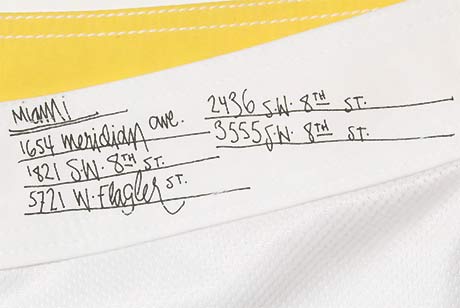 Miami
1654 meridian ave.
1821 S.W. 8TH ST.
5721 W. Flagler ST.
2436 S.W. 8TH ST.
3555 S.W. 8TH ST.